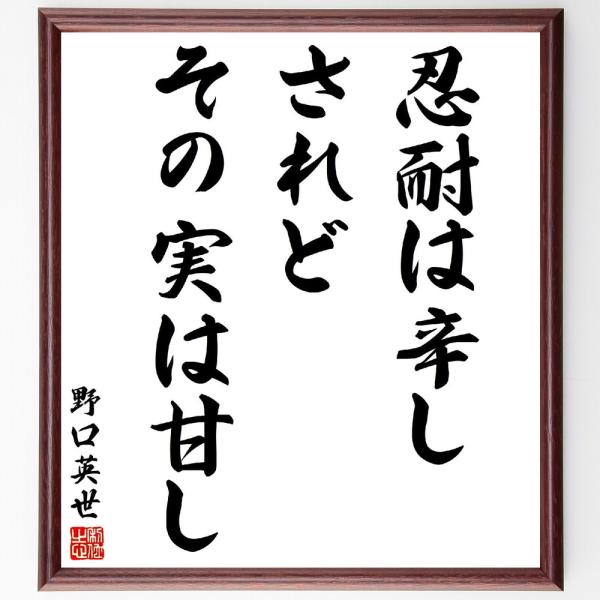 忍耐は辛し
されど
その実は甘し
野口英世